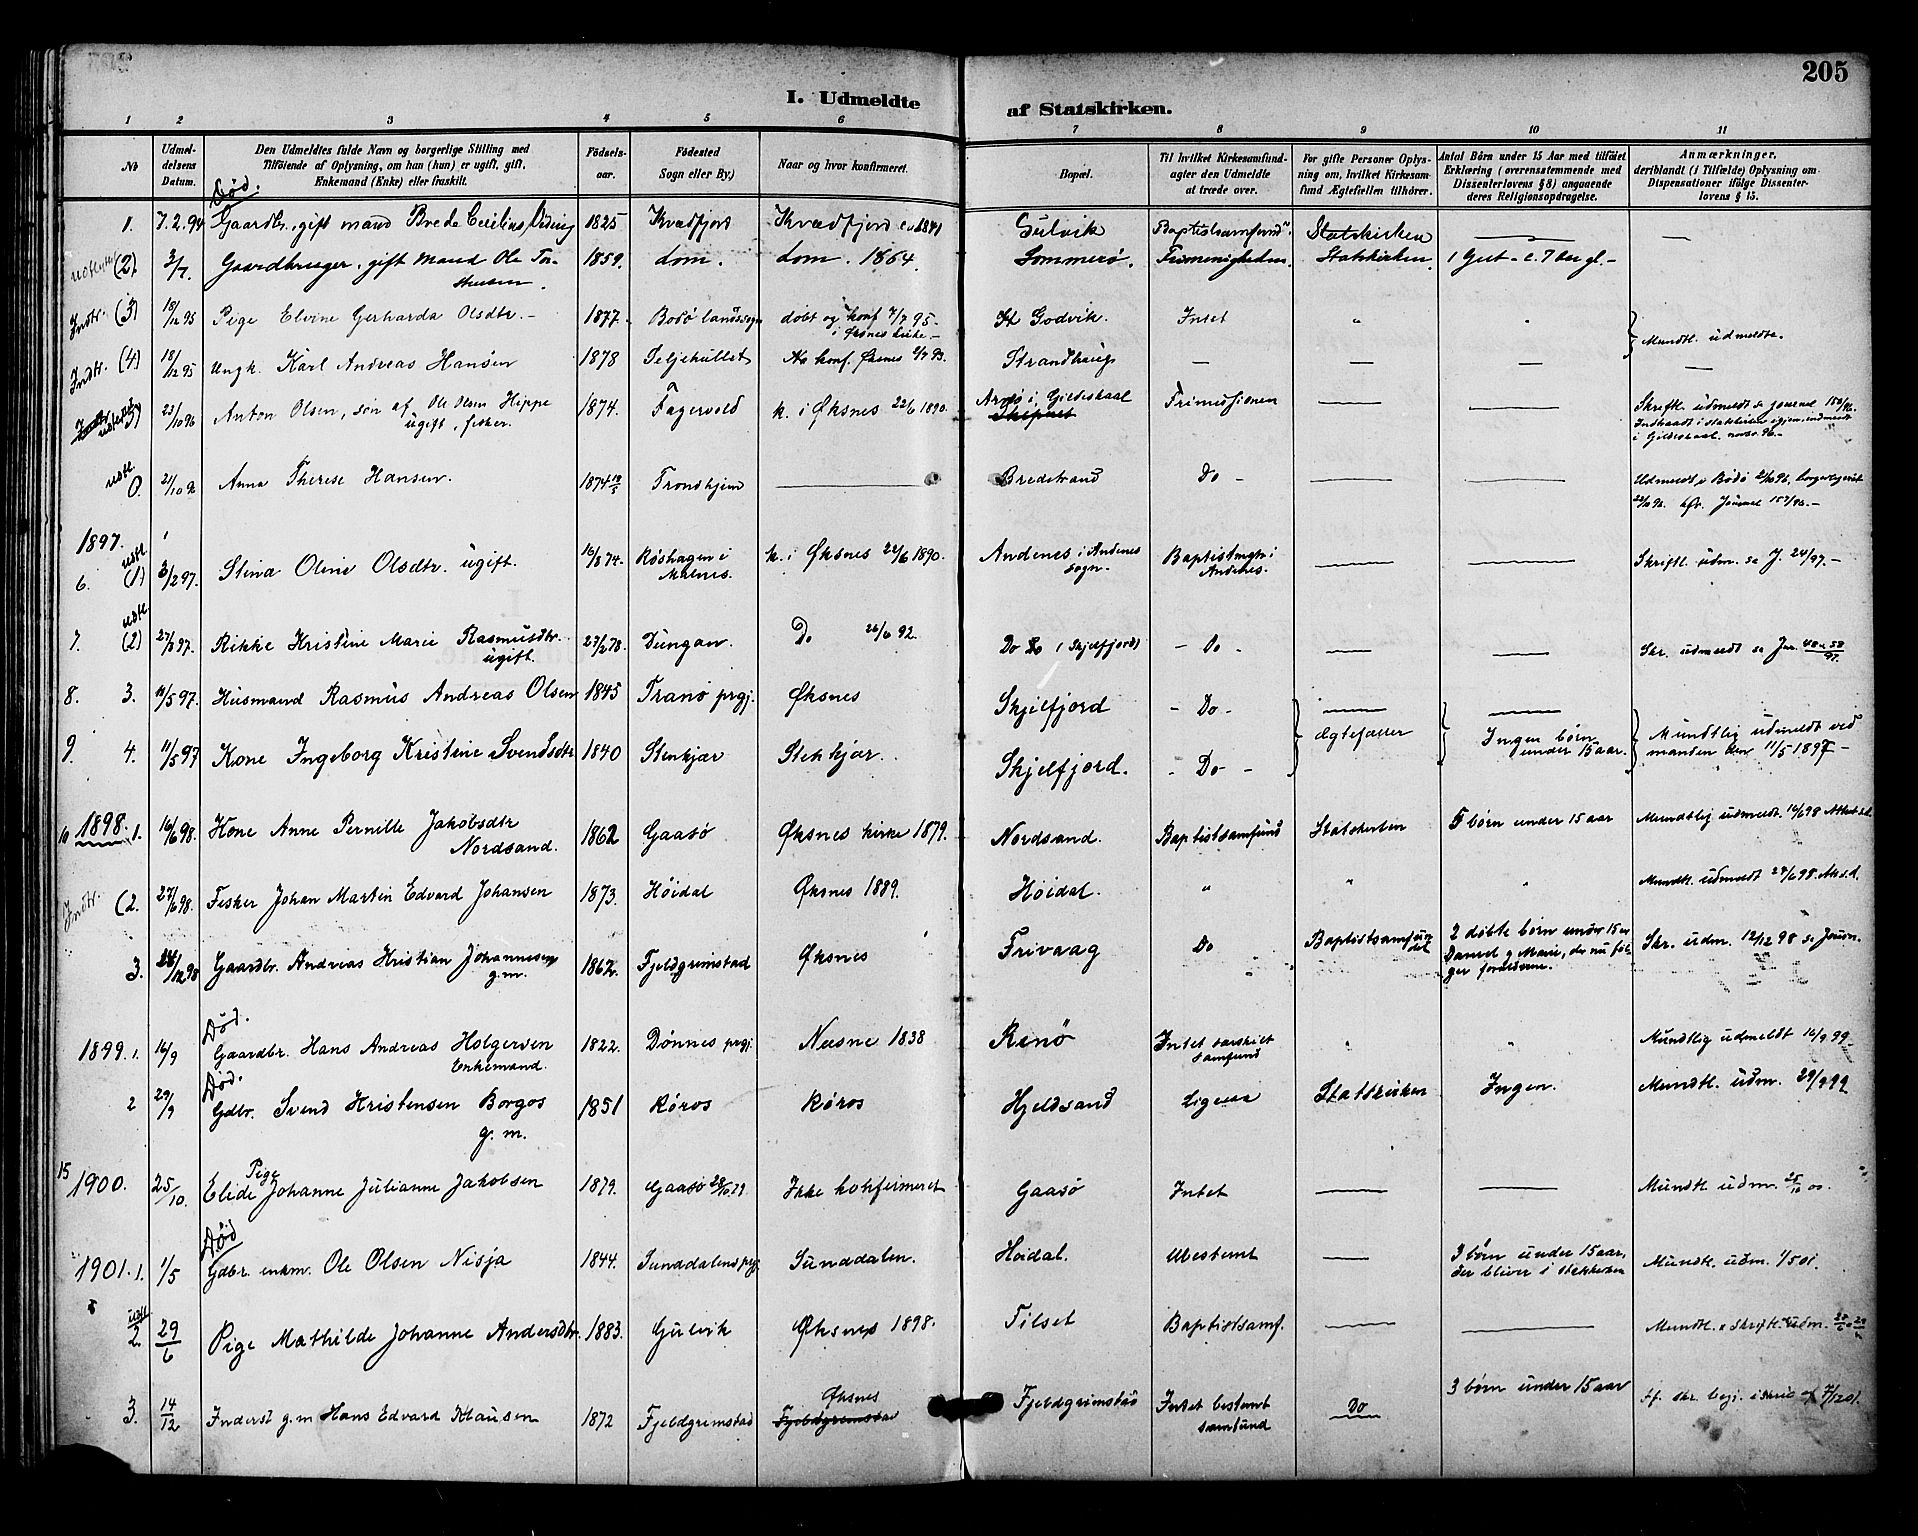 205
I. Udmeldte af Statskirken.
1 2 3 4 5 6 7 8 9 10 11
No
Udmel-
delsens
Datum.
Den Udmeldtes fulde Navn og borgerlige Stilling med
Tilføiende af Oplysning, om han (hun) er ugift, gift,
Enkemand (Enke) eller fraskilt.
Fødsels-
aar.
Fødested
Sogn eller By.)
Naar og hvor konfirmeret.
Bopæl.
Til hvilket Kirkesamfund-
agter den Udmeldte
at træde over.
For gifte Personer Oplys-
ning om, hvilket Kirkesam-
fund Ægtefællen tilhører.
Antal Børn under 15 Aar med tilføiet
Erklæring (overensstemmende med
Dissenterlovens § 8) angaaende
deres Religionsopdragelse.
Anmærkninger,
deriblandt (i Tilfælde) Oplysning om
Dispensationer ifølge Dissenter-
lovens § 15.
Død.
1. 7.2.94 Gaardbr., gift mand Brede Cecilius 1825 Kvædfjord Kvædfjord 1841 Gulvik Baptistsamfund Statskirken — —
(2) 3/7. Gaardbruger, gift Mand Ole Tor-
stensen. 1859. Lom. Lom. 1864. Sommerø. Frimenigheden. Statskirken. 1 Gut
Indtr. (3) 18/12 95 Pige Elvine Gerharda Olsdtr. - 1877. Bodø landsogn døbt og konf 7/7 95 -
i Øksnes kirke - Godvik. Intet " " Mundtl. udmeldte.
Indtr. (4) 18/12 95 Ungk. Karl Andreas Hansen 1878 Seljehullet konf. Øksnes Strandhaug — — — —
23/10 96 Anton Olsen, søn af Ole Olsen Hippe
ugift, fisker. 1874. Fagervold k. i Øksnes 22/6 1890. Arnø i Gildeskaal
Frimissionen — — Skriftl. udmeldt se journal 150/96.
Indtraadt i statskirken igjen, indmeldt
i Gildeskaal novbr. 96. -
udtl. 21/10 96 Anna Therese Hansen. 1874 Trondhjem — Bredstrand Do - — — Udmeldt i Bodø borgerligviet
Journal 157/96. -
1897.
6. udtl. (1) 3/2 97. Stina Oline Olsdtr. ugift. 16/8 74. Røshagen i
Malnes. k. i Øksnes 22/6 1890. Andenes i Andenes
sogn. Baptistmgh i
Andenes. — — Skriftl. udm. se J. 24/97. -
7. udtl. (2) Rikke Kristine Marie Rasmusdtr.
ugift. 27/2 78. Dungan. Do 26/6 92. Do (Skjelfjord) - Do - — — Skr. udmeldt se Jnr. 97.
8. 3. 11/5 97. Husmand Rasmus Andreas Olsen 1845 Tranø prgj. Øksnes Skjelfjord - Do - — —
9. 4. 11/5 97 Kone Ingeborg Kristine Svendsdtr 1840 Stenkjær Stenkjær. Skjelfjord. - Do - Ægtefæller Ingen børn
under 15 aar. Mundtlig udmeldt ved
manden den 11/5 1897 -
10 1898. 1. 16/6 98. Kone Anne Pernille Jakobsdtr
Nordsand. 1862 Gaasø Øksnes kirke 1879. Nordsand. Baptistsamfund Statskirken 5 børn under 15 aar Mundtlig udmeldt. 16/6 98
Indtr. (2. 27/6 98. Fisker Johan Martin Edvard Johansen 1873. Høidal Øksnes 1889. Høidal. " " " Mundtl. udmeldt 27/6 98.
3. 12 98 Gaardbr. Andreas Kristian Johannesen
g.m. 1862. Fjeldgrimstad Øksnes Frivaag Do Baptistsamfun-
det 2 døbte børn under 15 aar
Daniel og Marie, der nu føl-
ger forældrene. Skr. udm. 12/12 98 se Journ.
Død.
1899. 1. 16/9 Gaardbr. Hans Andreas Holgersen
Enkemand. 1822. Dønnes prgj. Nesne 1838 Renø Intet særskilt
samfund " " Mundtlig udmeldt 16/9 99.
Død.
2 29/9 Gdbr. Svend Kristensen Borgos
g. m. 1851 Røros Røros Hjeldsand Ligesaa Statskirken Ingen. Mundtl. udm. 29/9 99
15 1900. 25/10. Pige
Elide Johanne Julianne Jakobsen 1879. Gaasø 79 Ikke konfirmeret Gaasø Intet — — Mundtl. udm. 25/10 00.
Død
1901. 1. 1/5 Gdbr. enkm. Ole Olsen Nisja 1844. Sunddalens prgj. Sunddalen. Høidal. Ubestemt — 3 børn under 15 aar,
der bliver i statskirken Mundtl. udm. 1/5 01.
udtl
2. 29/6 Pige Mathilde Johanne Andersdtr. 1883. Gulvik Øksnes 1898. Tilset Baptistsamf. — — Mundtl. & skriftl. udm.
3. 14/12 Inderst g.m Hans Edvard Klausen 1872 Fjeldgrimstad Øksnes
Fjeldgrimstad Fjeldgrimstad Intet bestemt
samfund Do 3 børn under 15 aar